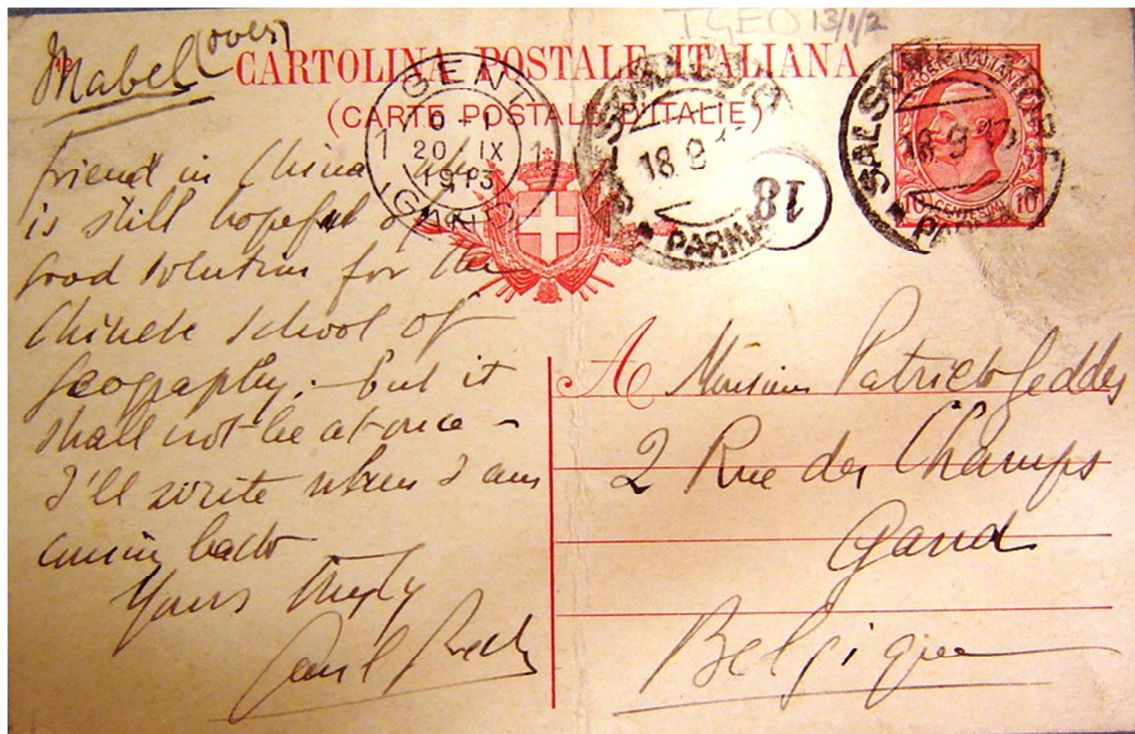 TGED 13/1/2
Mabel (over)
CARTOLINA POSTALE ITALIANA
(CARTE POSTALE D'ITALIE)
GENT
1 0-1 1
20 IX
1913
GAND
SALSOMAGGIORE
18.9.13
PARMA
18
SALSOMAGGIORE
18.9.13
PARMA
POSTE ITALIANE
10 CENTESIMI 10
friend in China who
is still hopeful of
good solution for the
Chinese School of
Geography; - but it
shall not be at once -
I'll write when I am
coming back
Yours truly
Paul
A Monsieur Patrick Geddes
2 Rue des Champs
Gand
Belgique